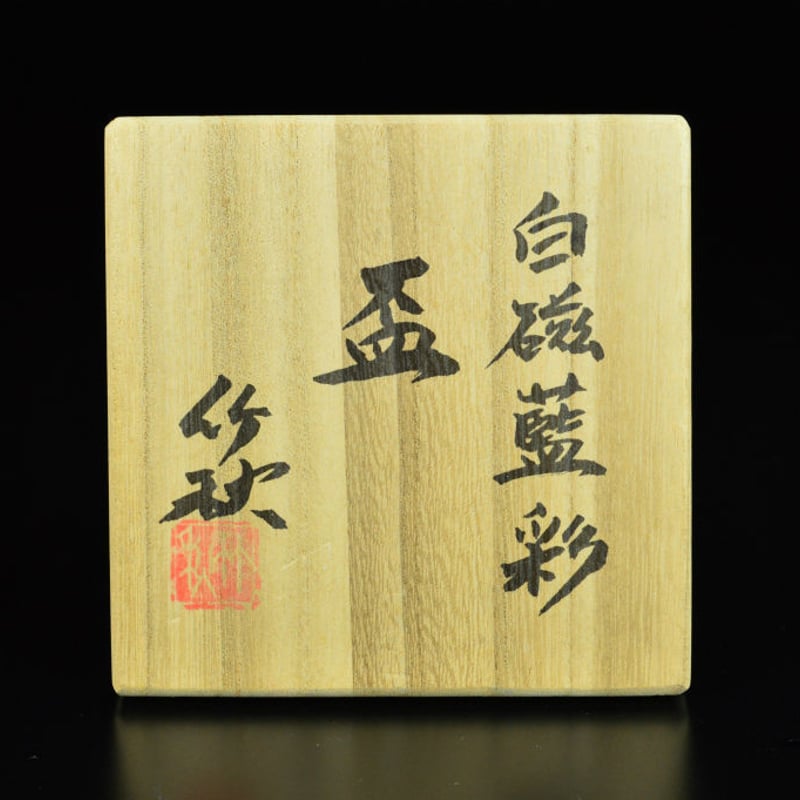 白磁藍彩
盃
竹秋